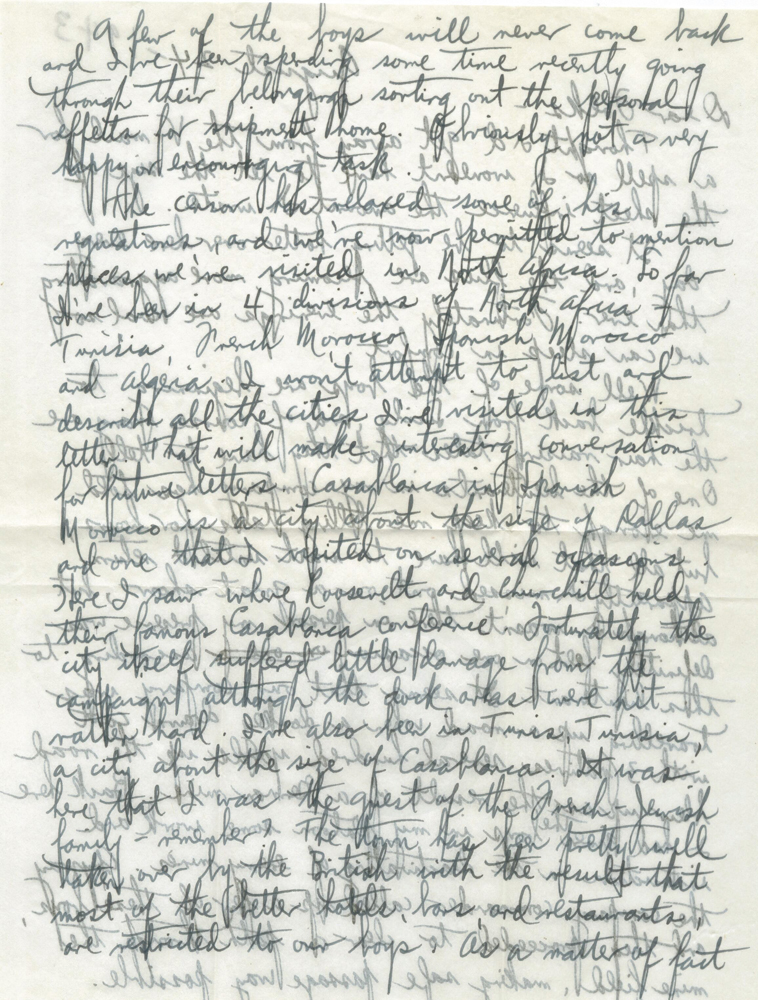 A few of the boys will never come back
and I've been spending some time recently going
through their belongings sorting out the personal
effects for shipment home. Obviously not a very
happy or encouraging task.
The censor has relaxed some of his
regulations and we're now permitted to mention
places we've visited in North Africa. So far
I've been in 4 divisions of North Africa,
Tunisia, French Morocco, Spanish Morocco,
and Algeria. I won't attempt to list and
describe all the cities I've visited in this
letter. That will make interesting conversation
for future letters. Casablanca in Spanish
Morocco is a city about the size of Dallas
and one that I visited on several occasions.
Here I saw where Roosevelt and Churchill held
their famous Casablanca conference. Fortunately the
city itself suffered little damage from the
campaign although the dock areas were hit
rather hard. I've also been in Tunis, Tunisia,
a city about the size of Casablanca. It was
here that I was the guest of the French-Jewish
family - remember? The town has been pretty well
taken over by the British with the result that
most of the better hotels, bars and restaurants,
are restricted to our boys. As a matter of fact